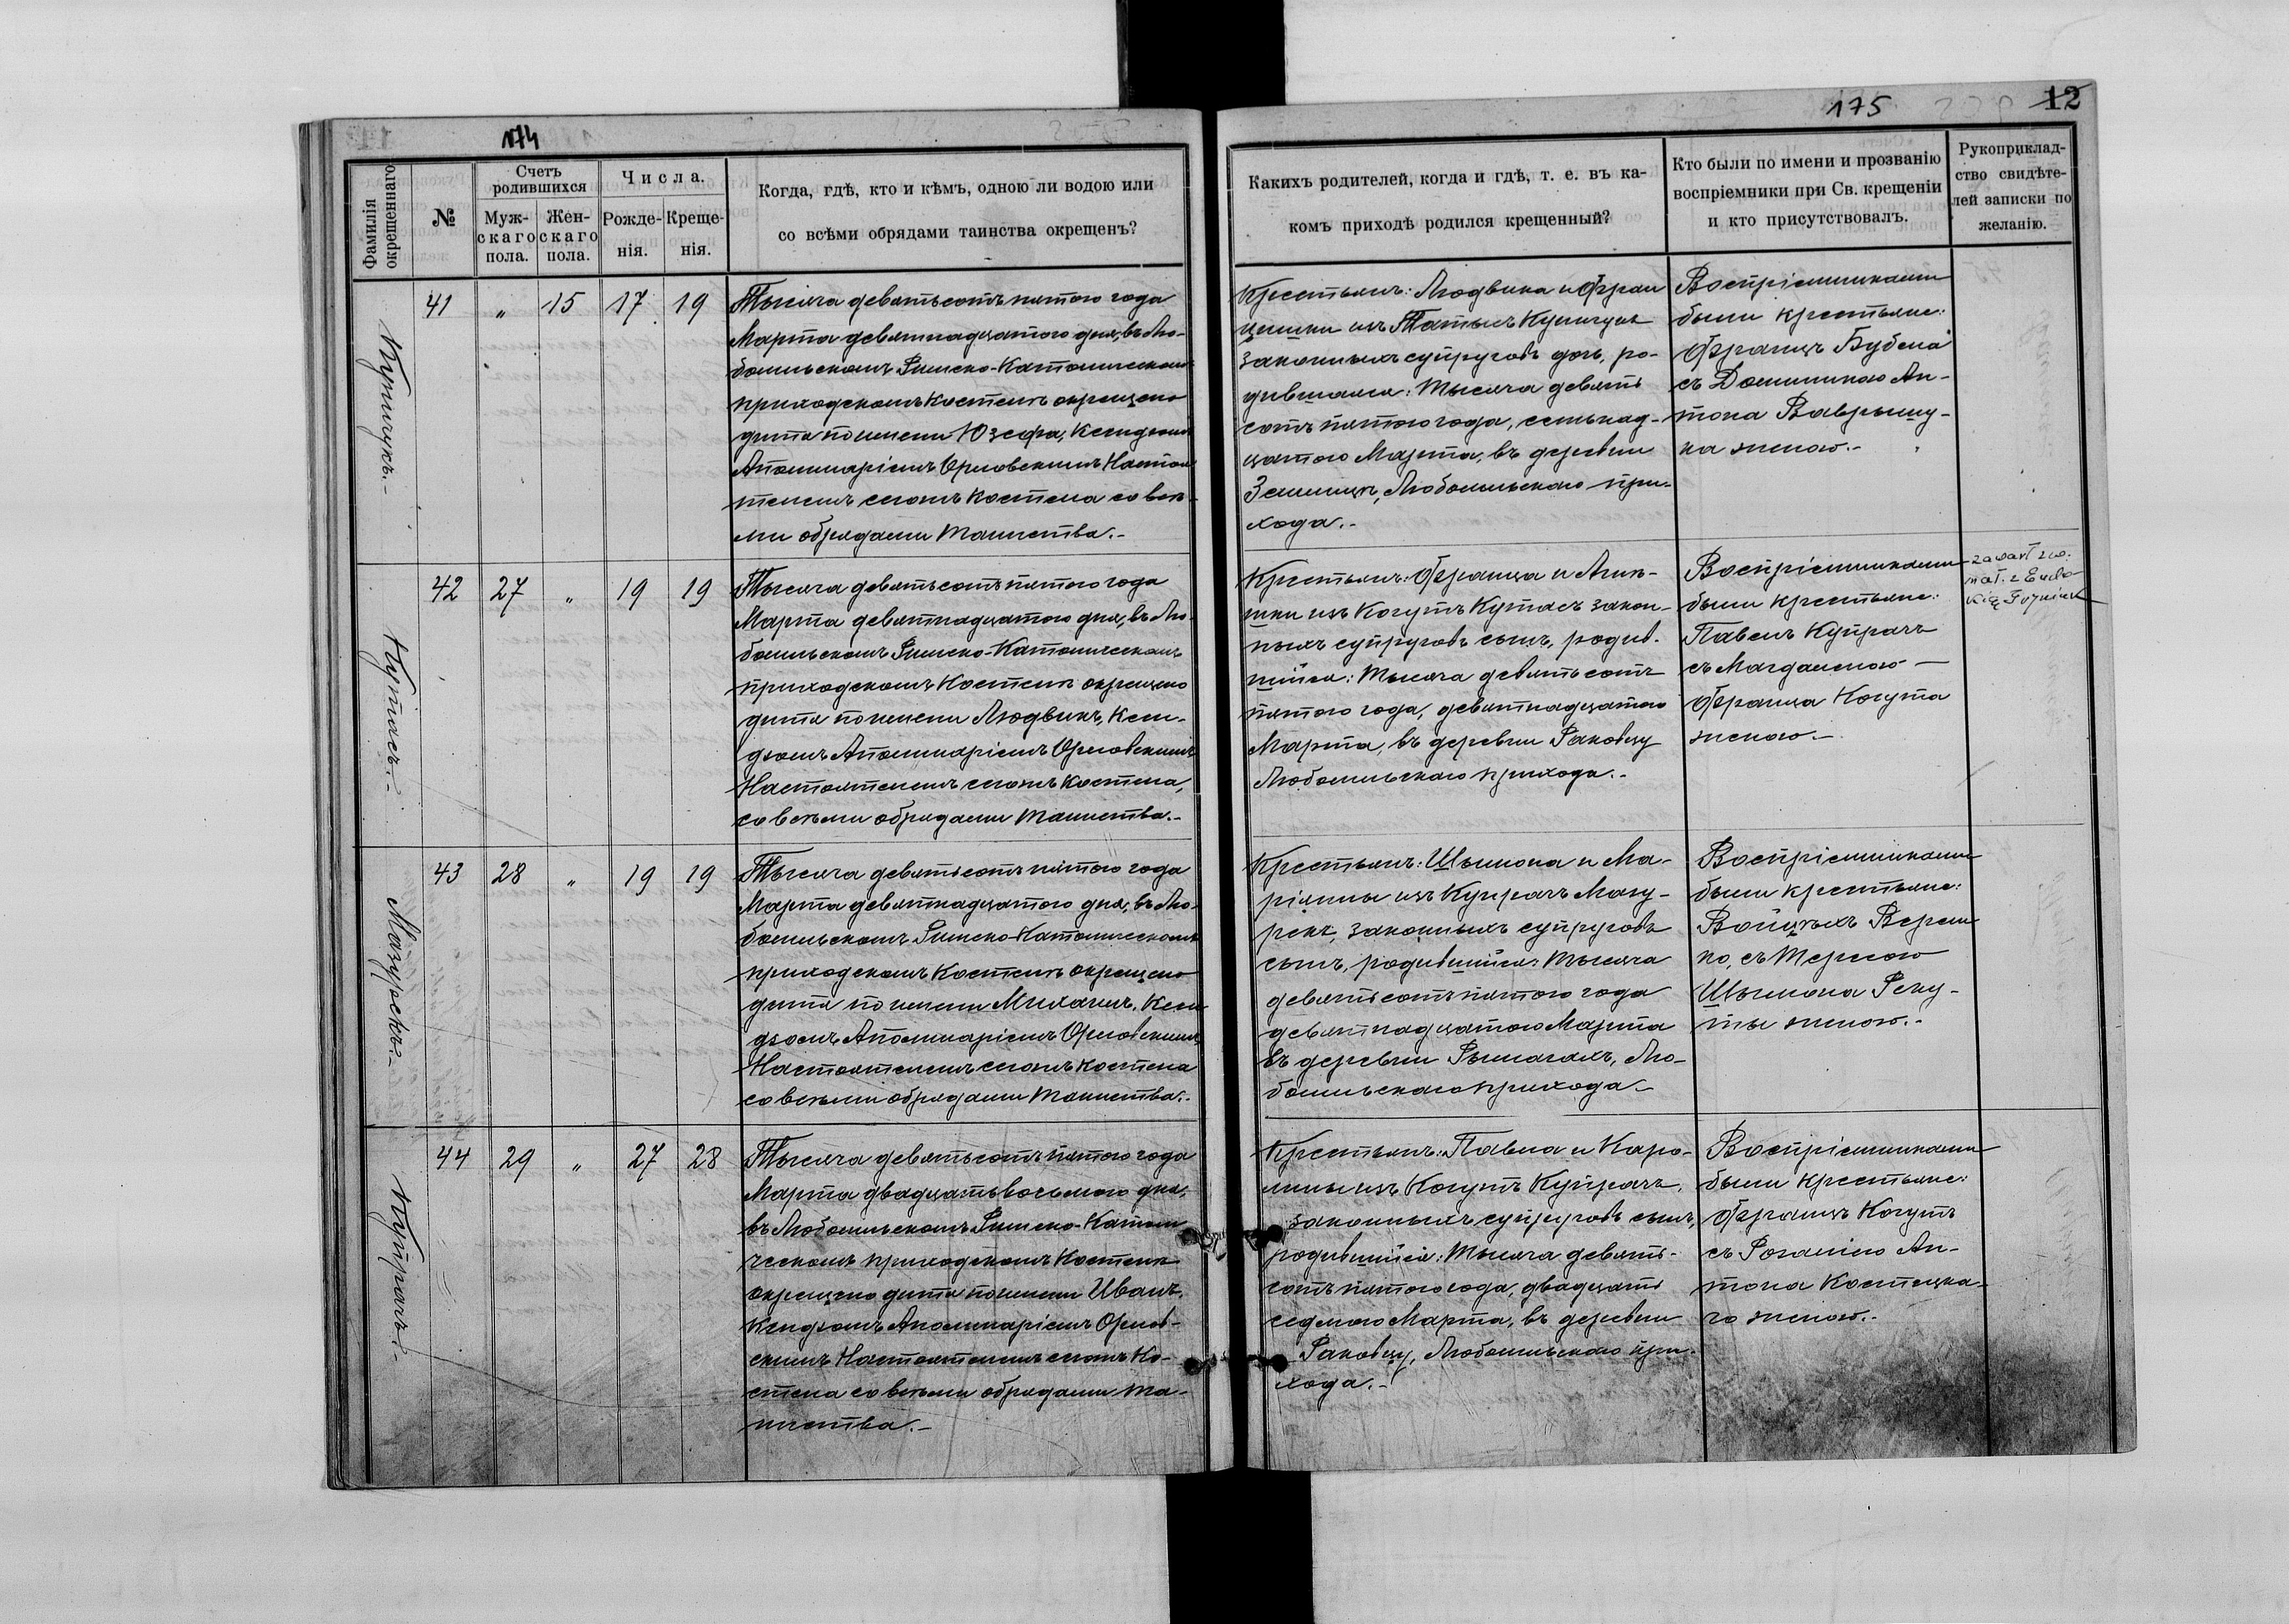 174
Фамилія окрещеннаго
№
Счетъ родившихся
Муж-
скаго
пола.
Жен-
скаго
пола.
Числа.
Рожде-
нія.
Креще-
нія.
Когда, гдѣ, кто и кѣмъ, одною ли водою или
со всѣми обрядами таинства окрещенъ?
41 " 15 17 19
Тысяча девятьсотъ пятого года
Марта девятнадцатого дня, въ Лю-
бомльскомъ Римско-Католическомъ
приходскомъ Костелѣ окрещено
дитя по имени Юзефа, Ксендзомъ
Аполинаріемъ Орловскимъ Настоя
телемъ сего-жъ Костела со всѣ-
ми обрядами Таинства.-
42 27 " 19 19
Купасъ.-
Тысяча девятьсотъ пятого года
Марта девятнадцатого дня, въ Лю-
бомльскомъ Римско-Католическомъ
приходскомъ Костелѣ окрещено
дитя по имени Людвикъ, Ксен-
дзомъ Аполинаріемъ Орловскимъ
Настоятелемъ сего-жъ Костела,
со всѣми обрядами Таинства.-
43 28 " 19 19
Мазурекъ.-
Тысяча девятьсотъ пятого года
Марта девятнадцатого дня, въ Лю-
бомльскомъ Римско-Католическомъ
приходскомъ Костелѣ окрещено
дитя по имени Михаилъ, Ксен
дзомъ Аполинаріемъ Орловскимъ
Настоятелемъ сего-жъ Костела
со всѣми обрядами Таинства.-
44 29 " 27 28
Купрачъ.-
Тысяча девятьсотъ пятого года
Марта двадцать восьмого дня,
въ Любомльскомъ Римско-Католи
ческомъ приходскомъ Костелѣ
окрещено дитя по имени Иванъ,
Ксендзомъ Аполинаріемъ Орлов-
скимъ Настоятелемъ сего-жъ Ко-
стела со всѣми обрядами Та-
инства.-
175
12
Какихъ родителей, когда и гдѣ, т. е. въ ка-
комъ приходѣ родился крещенный?
Кто были по имени и прозванію
воспріемники при Св. крещеніи
и кто присутствовалъ.
Рукоприклад-
ство свидѣте-
лей записки по
желанію.
Крестьянъ: Людвика и Фран
цишки изъ
законныхъ супруговъ дочь, ро-
дившаяся: Тысяча девять
сотъ пятого года, семьнад-
цатого Марта, въ деревни
Землицѣ, Любомльскаго при-
хода.-
Воспріемниками
были крестьяне:
Францъ Бубела
съ Доминикою Ан-
тона Ваврыщу-
ка женою.-
Крестьянъ: Франца и Агнѣ-
шки изъ Когутъ Купасъ закон-
ныхъ супруговъ сынъ, родив-
шійся: Тысяча девятьсотъ
пятого года, девятнадцатого
Марта, въ деревни Раковцу
Любомльскаго прихода.-
Воспріемниками
были крестьяне:
Павелъ Купрачъ
съ Магдаленою
Франца Когута
женою.-
zawarł zw.
mał. z
Крестьянъ: Шымона и Ма-
ріянны изъ Купрачъ Мазу-
рекъ, законныхъ супруговъ
сынъ, родившійся: Тысяча
девятьсотъ пятого года
девятнадцатого Марта
въ деревни Рымачахъ, Лю-
бомльскаго прихода.-
Воспріемниками
были крестьяне:
Войцѣхъ
съ Терезою
Шымона Реку-
ты женою.-
Крестьянъ: Павла и Каро-
лины изъ Когутъ Купрачъ,
законныхъ супруговъ сынъ,
родившійся: Тысяча девять-
сотъ пятого года, двадцать
седмого Марта, въ деревни
Раковцу, Любомльскаго при-
хода.-
Воспріемниками
были крестьяне:
Францъ Когутъ
съ Розаліею Ан-
тона Костецка-
го женою.-